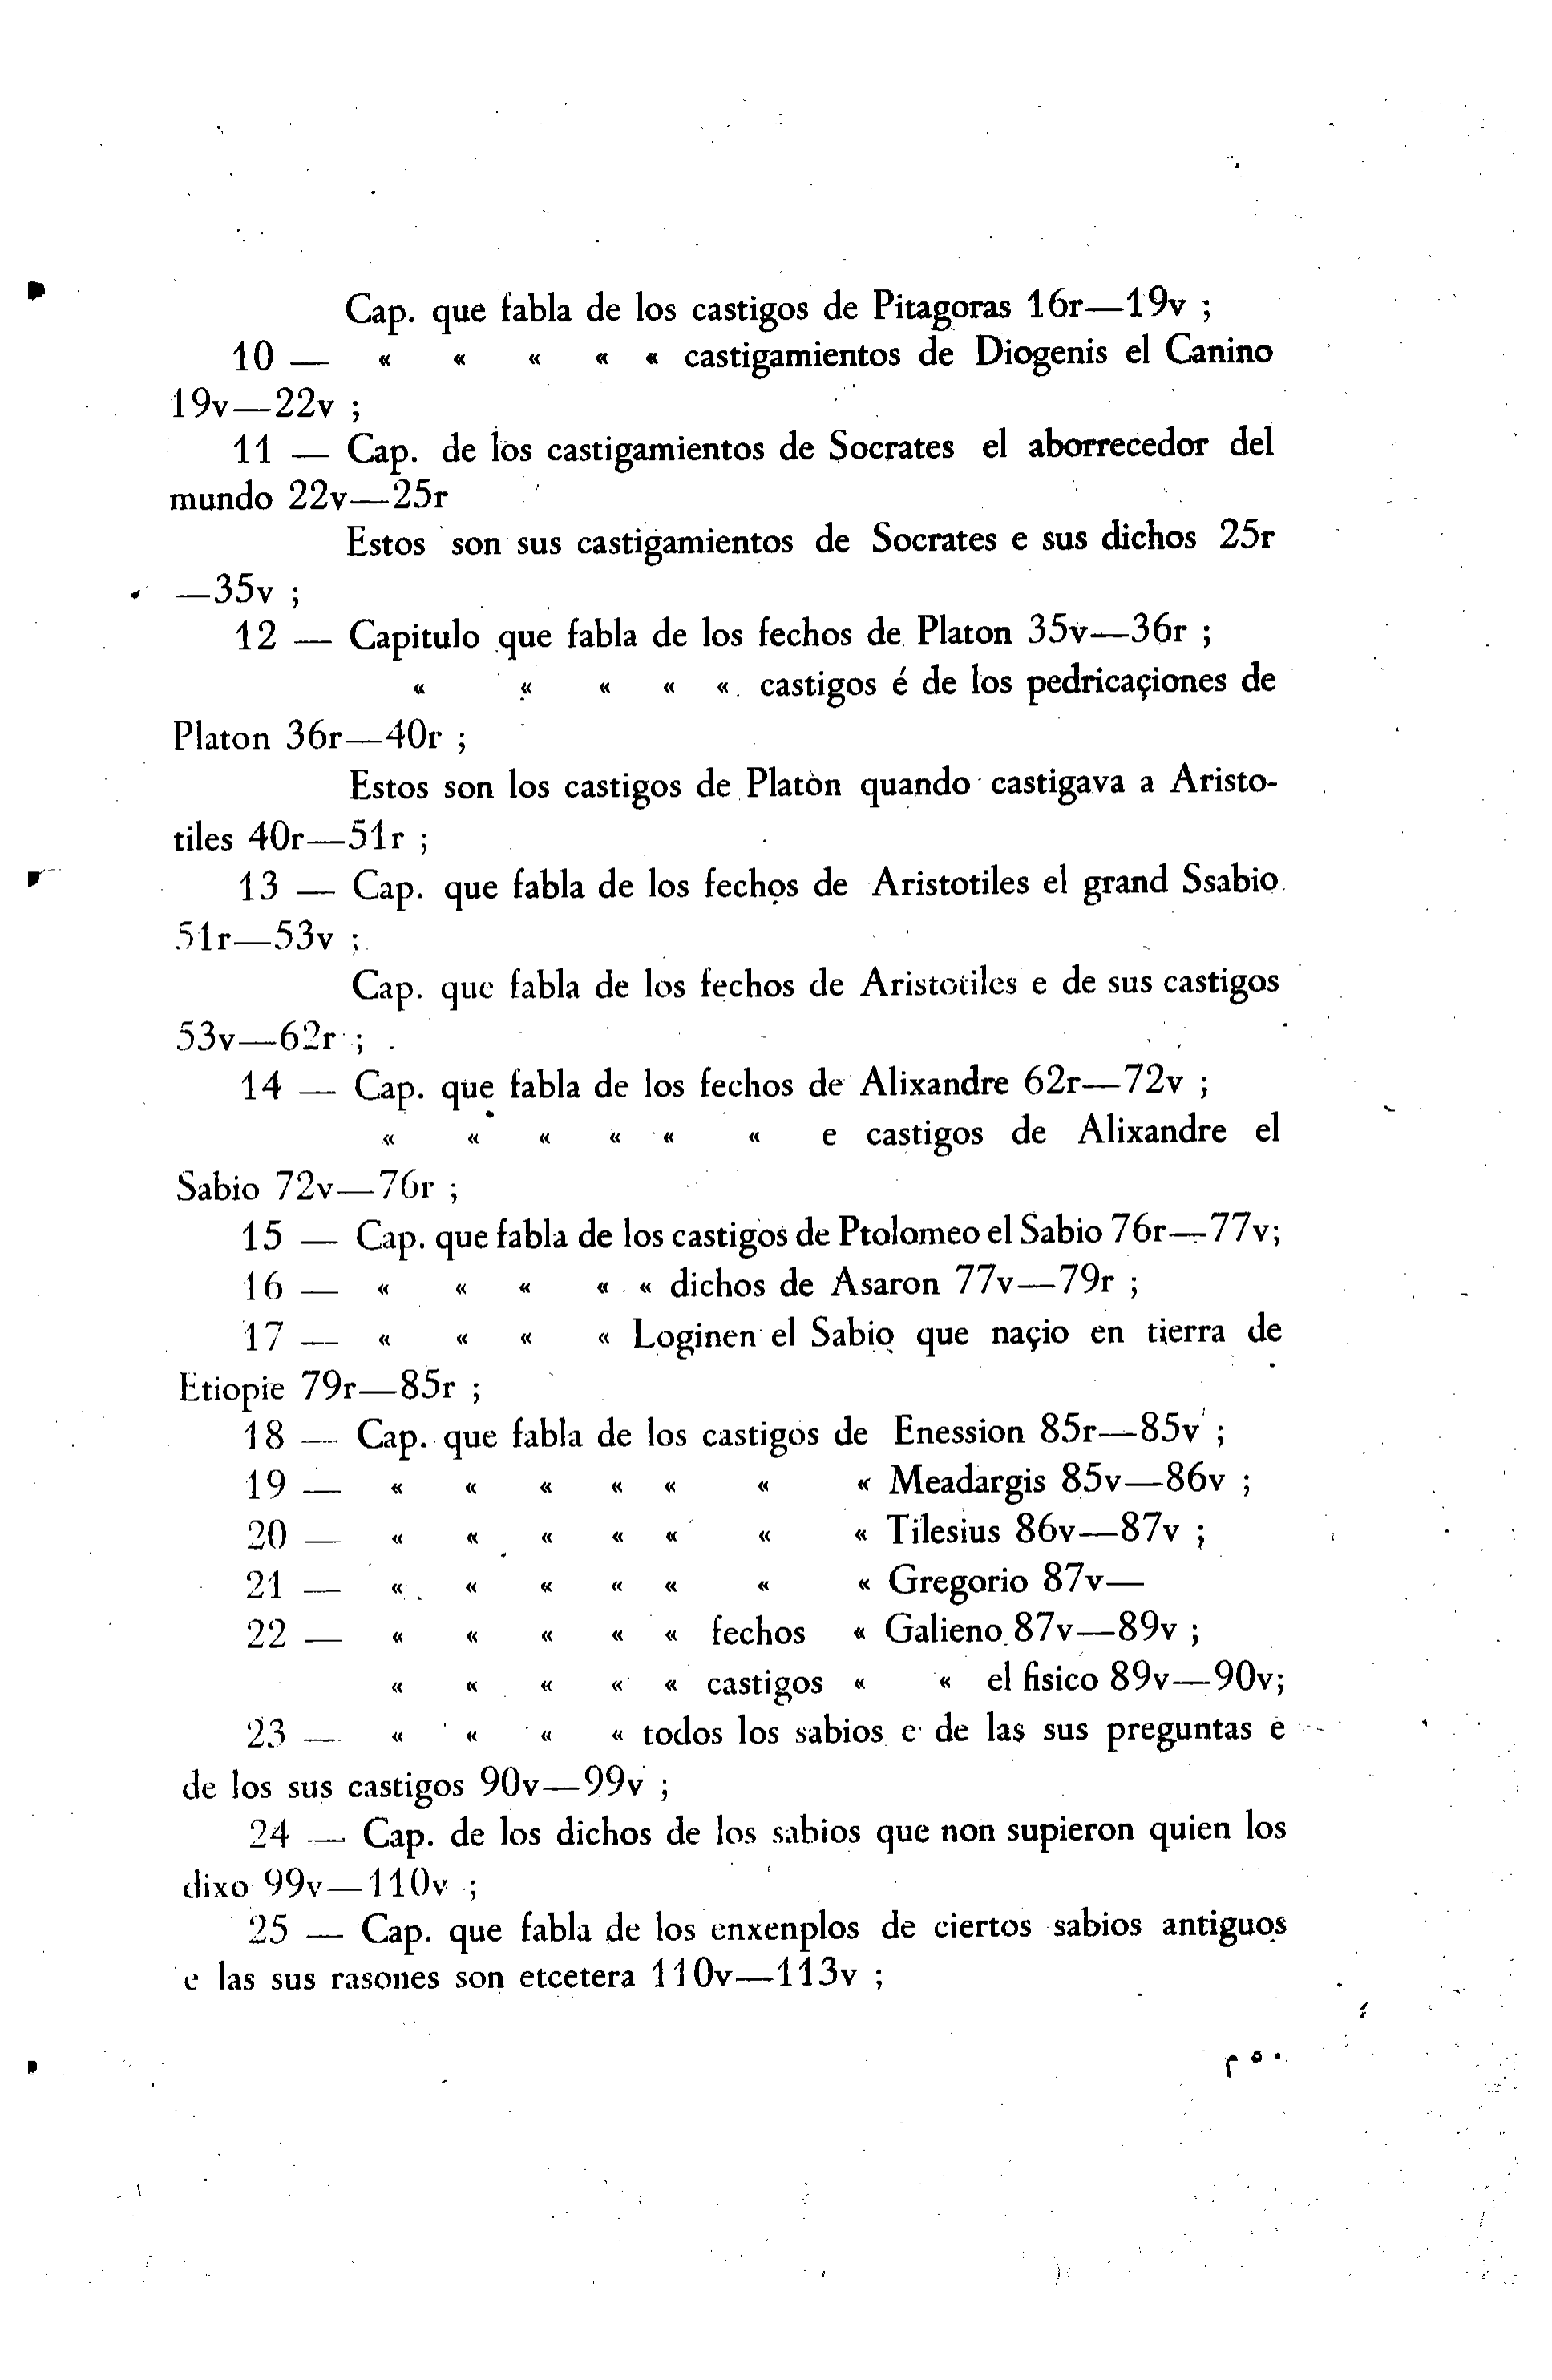 Cap. que fabla de los castigos de Pitagoras 16r—19v ;
10 — « « « « « castigamientos de Diogenis el Canino
19v—22v ;
11 — Cap. de los castigamientos de Socrates el aborrecedor del
mundo 22v—25r
Estos son sus castigamientos de Socrates e sus dichos 25r
—35v ;
12 — Capitulo que fabla de los fechos de Platon 35v—36r ;
« « « « « castigos é de los pedricaçiones de
Platon 36r—40r ;
Estos son los castigos de Platon quando castigava a Aristo-
tiles 40r—51r ;
13 — Cap. que fabla de los fechos de Aristotiles el grand Ssabio
51r—53v ;
Cap. que fabla de los fechos de Aristotiles e de sus castigos
53v—62r ;
14 — Cap. que fabla de los fechos de Alixandre 62r—72v ;
« « « « « « e castigos de Alixandre el
Sabio 72v—76r ;
15 — Cap. que fabla de los castigos de Ptolomeo el Sabio 76r—77v;
16 — « « « « « dichos de Asaron 77v—79r ;
17 — « « « « Loginen el Sabio que naçio en tierra de
Etiopie 79r—85r ;
18 — Cap. que fabla de los castigos de Enession 85r—85v ;
19 — « « « « « « « Meadargis 85v—86v ;
20 — « « « « « « « Tilesius 86v—87v ;
21 — « « « « « « « Gregorio 87v—
22 — « « « « « fechos « Galieno 87v—89v ;
« « « « « castigos « « el fisico 89v—90v;
23 — « « « « todos los sabios e de las sus preguntas e
de los sus castigos 90v—99v ;
24 — Cap. de los dichos de los sabios que non supieron quien los
dixo 99v—110v ;
25 — Cap. que fabla de los enxenplos de ciertos sabios antiguos
e las sus rasones son etcetera 110v—113v ;